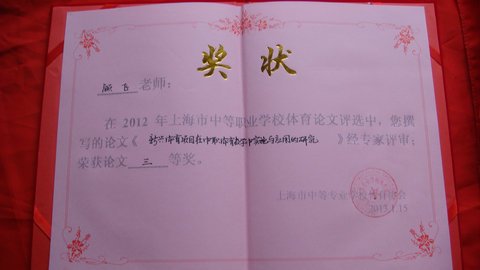 奖状
飞 老师：
在 2012 年上海市中等职业学校体育论文评选中，您撰
写的论文《 新兴体育项目在中职体育教学中实施与应用的研究 》经专家评审，
荣获论文 三 等奖。
上海市中等专业学校体育协会
2013.1.15